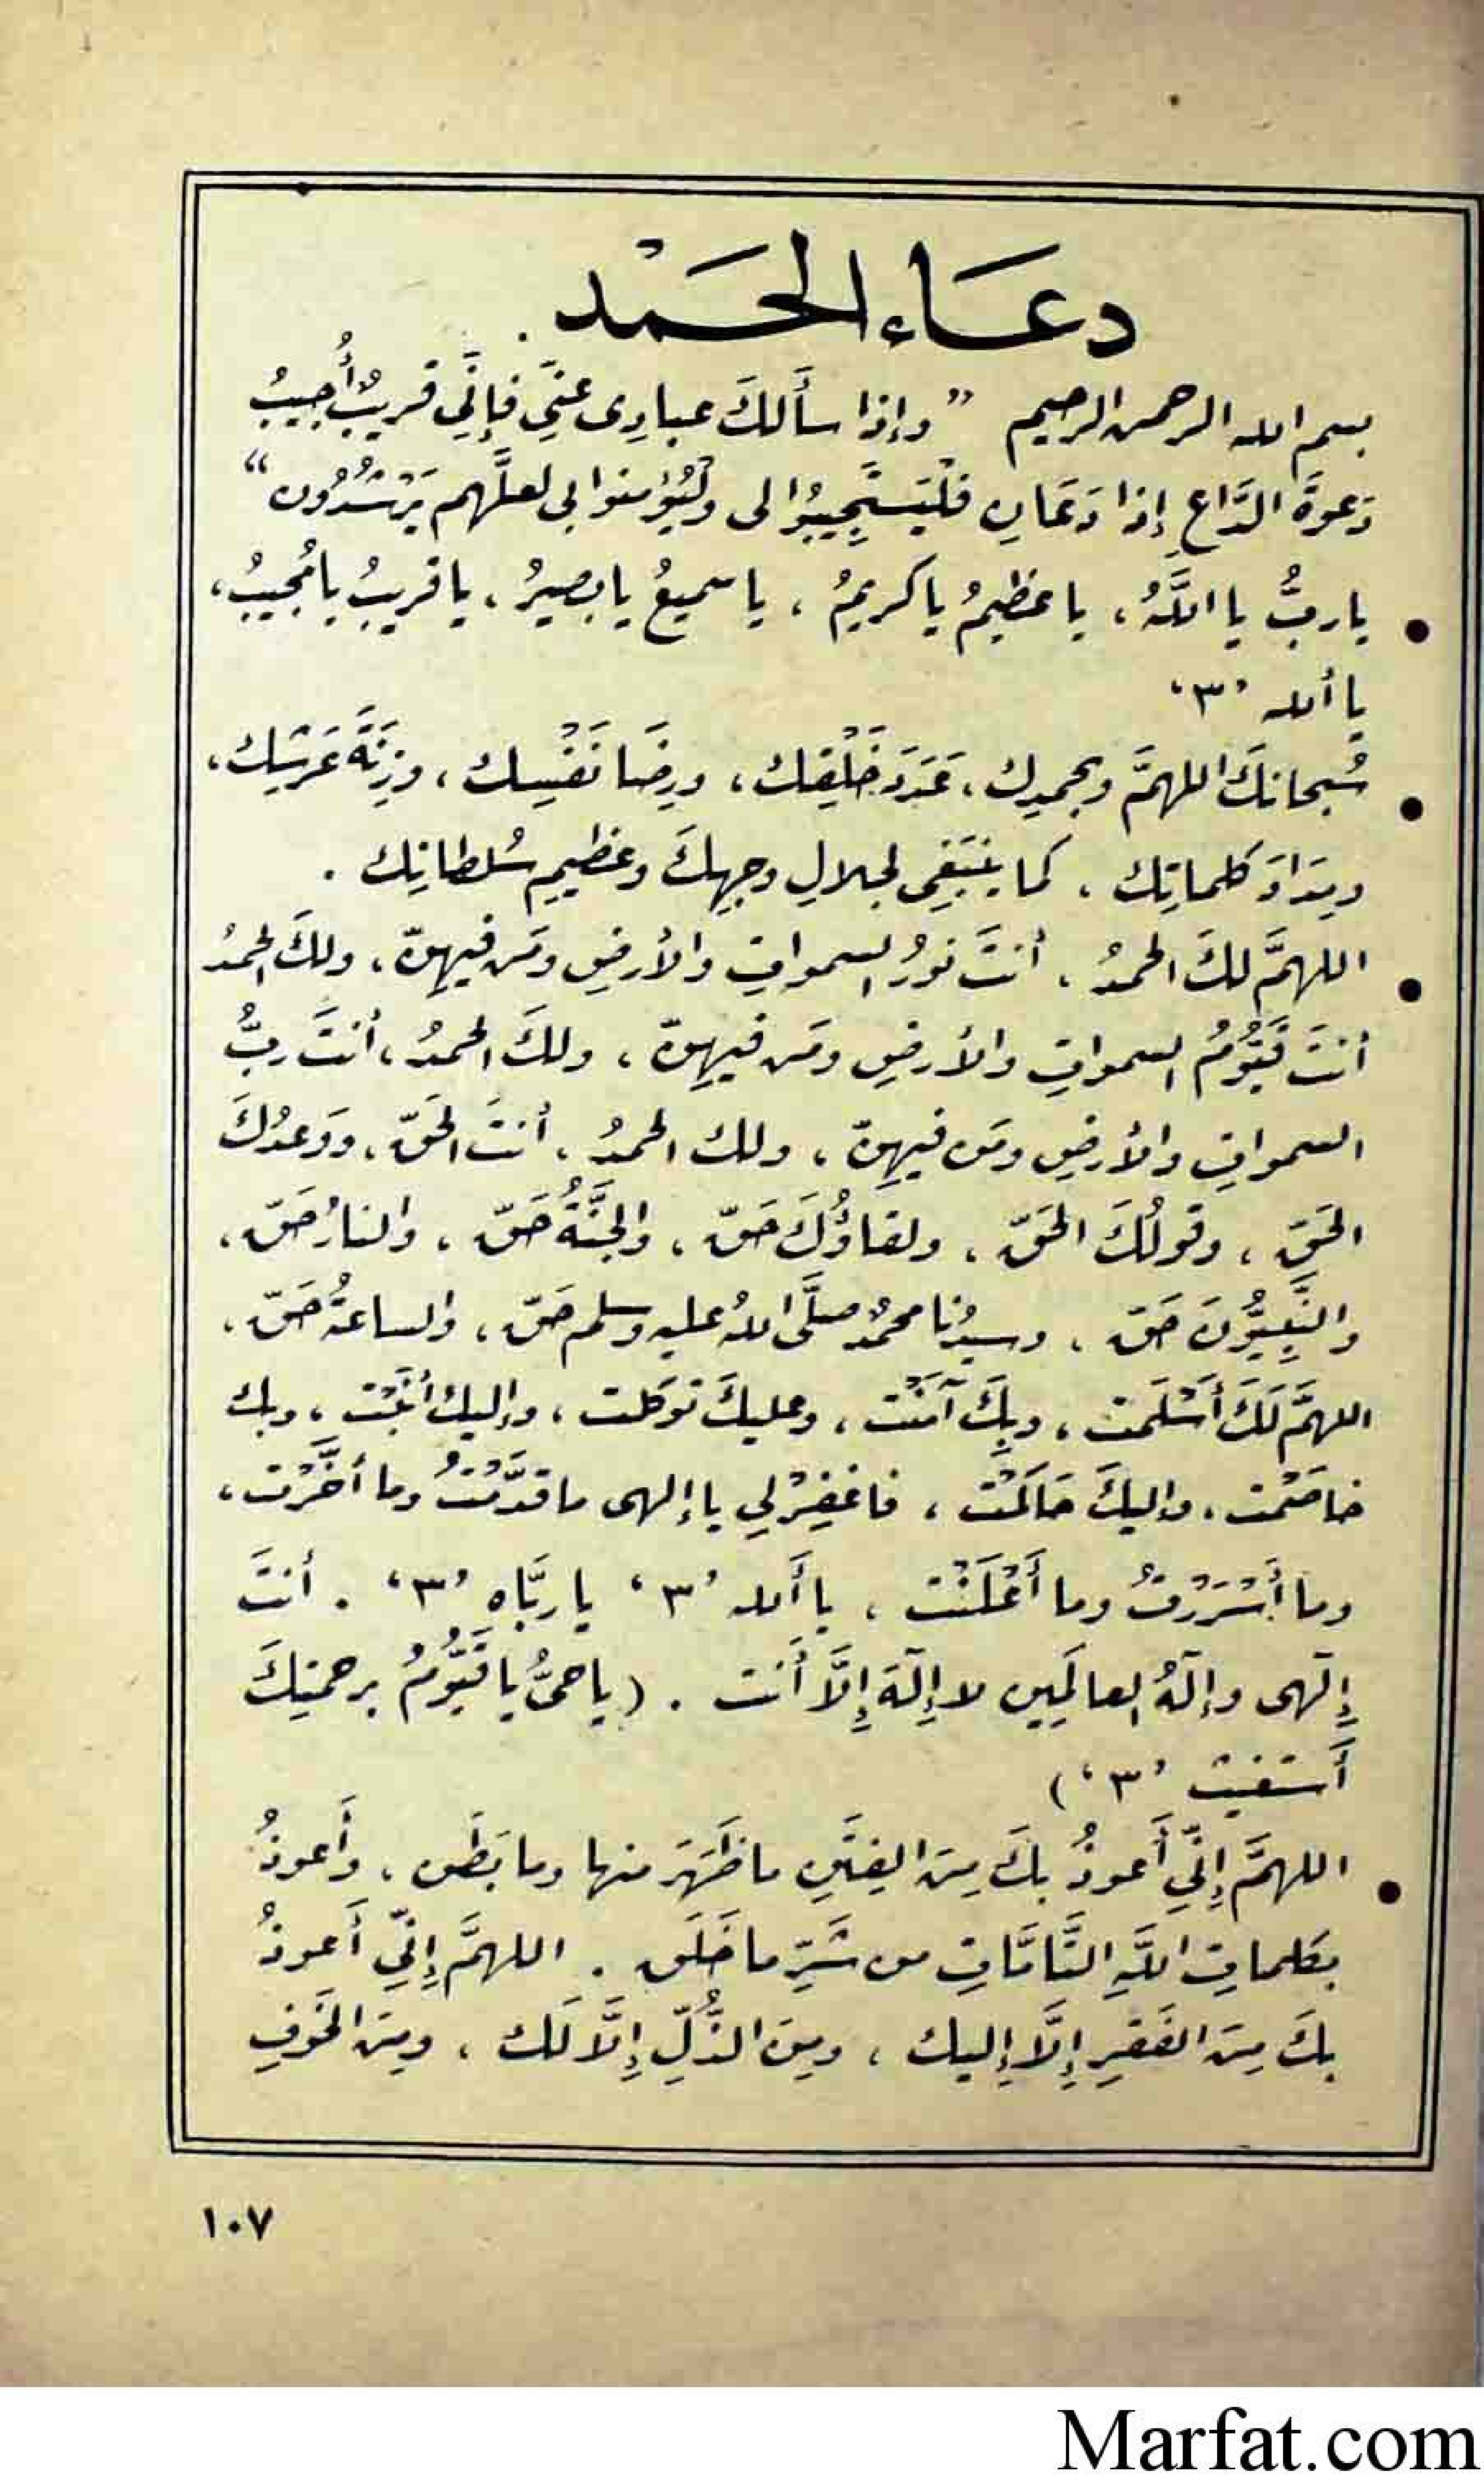 دعَاء الحَمْد .
بسم الله الرحمن الرحيم " وإذا سأَلكَ عبادِى عنِّى فإنِّي قريبٌ أُجيبُ
دَعوةَ الدَّاعِ إذا دَعَانِ فلْيَستَجِيبُوا لى ولْيُؤمنوا بى لعلَّهم يَرْشُدُون "
• يا ربُّ يا اللَّهُ ، يا عظيمُ يا كريمُ ، يا سميعُ يا بصيرُ ، يا قريبُ يا مُجيبُ ،
يا ألله ’٣‘
• سُبحانكَ اللهمَّ وبحمدِك ، عَدَدَ خَلْقِك ، ورِضَا نَفْسِك ، وزِنَةَ عَرشِك ،
ومِدَادَ كلماتِك ، كما ينبَغِى لجلالِ وجهِكَ وعظيمِ سُلطانِك .
• اللهمَّ لكَ الحمدُ ، أنتَ نورُ السمواتِ والأرضِ ومَن فيهِنّ ، ولكَ الحمدُ
أنتَ قَيُّومُ السمواتِ والأرضِ ومَن فيهِنّ ، ولكَ الحمدُ ، أنتَ ربُّ
السمواتِ والأرضِ ومَن فيهِنّ ، ولك الحمدُ ، أنتَ الحَقّ ، ووَعدُكَ
الحَقّ ، وقولُكَ الحَقّ ، ولقاؤُكَ حَقّ ، والجنَّةُ حَقّ ، والنارُ حَقّ ،
والنَّبِيُّونَ حَقّ ، وسيدُنا محمدٌ صلَّى اللهُ عليه وسلم حَقّ ، والساعةُ حَقّ ،
اللهمَّ لَكَ أَسْلَمت ، وبِكَ آمَنْت ، وعليكَ توكلت ، وإليكَ أَنَبْت ، وبك
خاصَمْت ، وإليكَ حَاكَمْت ، فاغفِرْ لي يا إلهى ما قدَّمْتُ وما أخَّرْت ،
وما أَسْرَرْتُ وما أَعْلَنْت ، يا أَلله ’٣‘ يا ربَّاه ’٣‘ . أنتَ
إِلَهى وإلَهُ العالَمِين لا إِلَهَ إِلَّا أَنت . (يا حىُّ يا قَيُّومُ برحمتِكَ
أَستغيث ’٣‘)
• اللهمَّ إِنِّي أَعوذُ بكَ مِنَ الفِتَنِ ما ظَهَرَ منها وما بَطَن ، وأَعوذُ
بكلماتِ اللَّهِ التَّامَّاتِ من شَرِّ ما خَلَق . اللهمَّ إِنِّي أَعوذُ
بكَ مِنَ الفَقرِ إِلَّا إِليك ، ومِنَ الذُّلِّ إِلَّا لَك ، ومِنَ الخَوفِ
١٠٧
Marfat.com